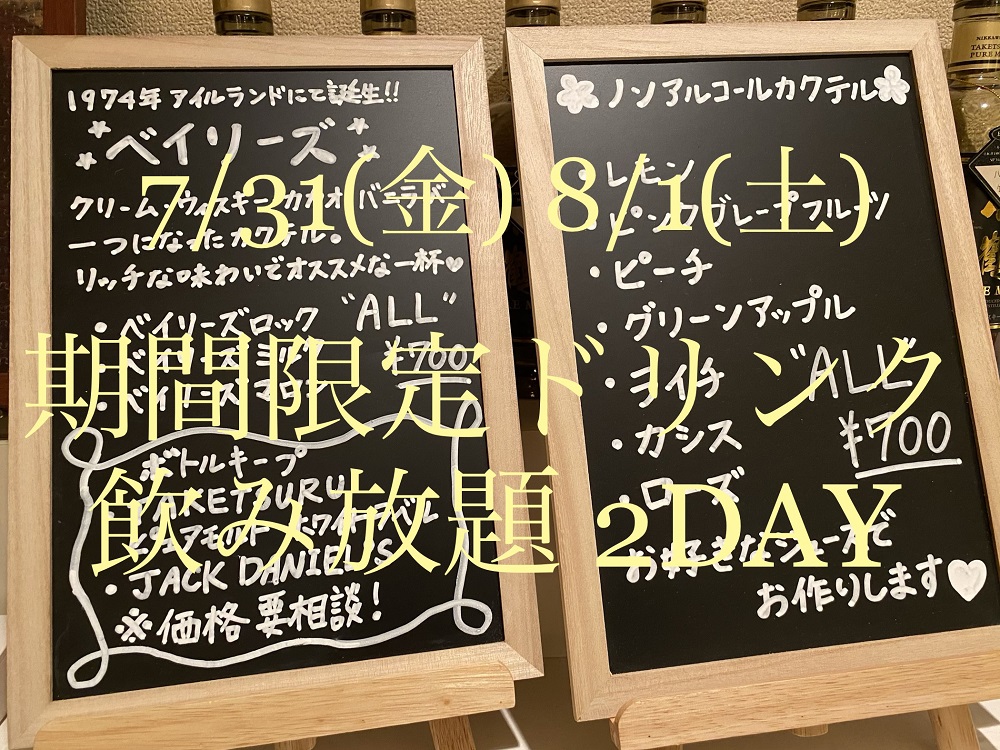 7/31(金) 8/1(土)
期間限定ドリンク
飲み放題 2DAY
1974年 アイルランドにて誕生!!
ベイリーズ
クリーム・ウィスキー・カカオ・バニラが
一つになったカクテル。
リッチな味わいでオススメな一杯♡
・ベイリーズロック "ALL"
・ベイリーズミルク ¥700
・ベイリーズ
ボトルキープ
・TAKETSURU
ピュアモルト ホワイトラベル
・JACK DANIEL'S
※価格要相談!
ノンアルコールカクテル
・レモン
・ピンクグレープフルーツ
・ピーチ
・グリーンアップル
・ヨイチ "ALL"
・カシス ¥700
・ローズ
お好きなジュースで
お作りします♡
NIKKA
TAKETS
PURE M